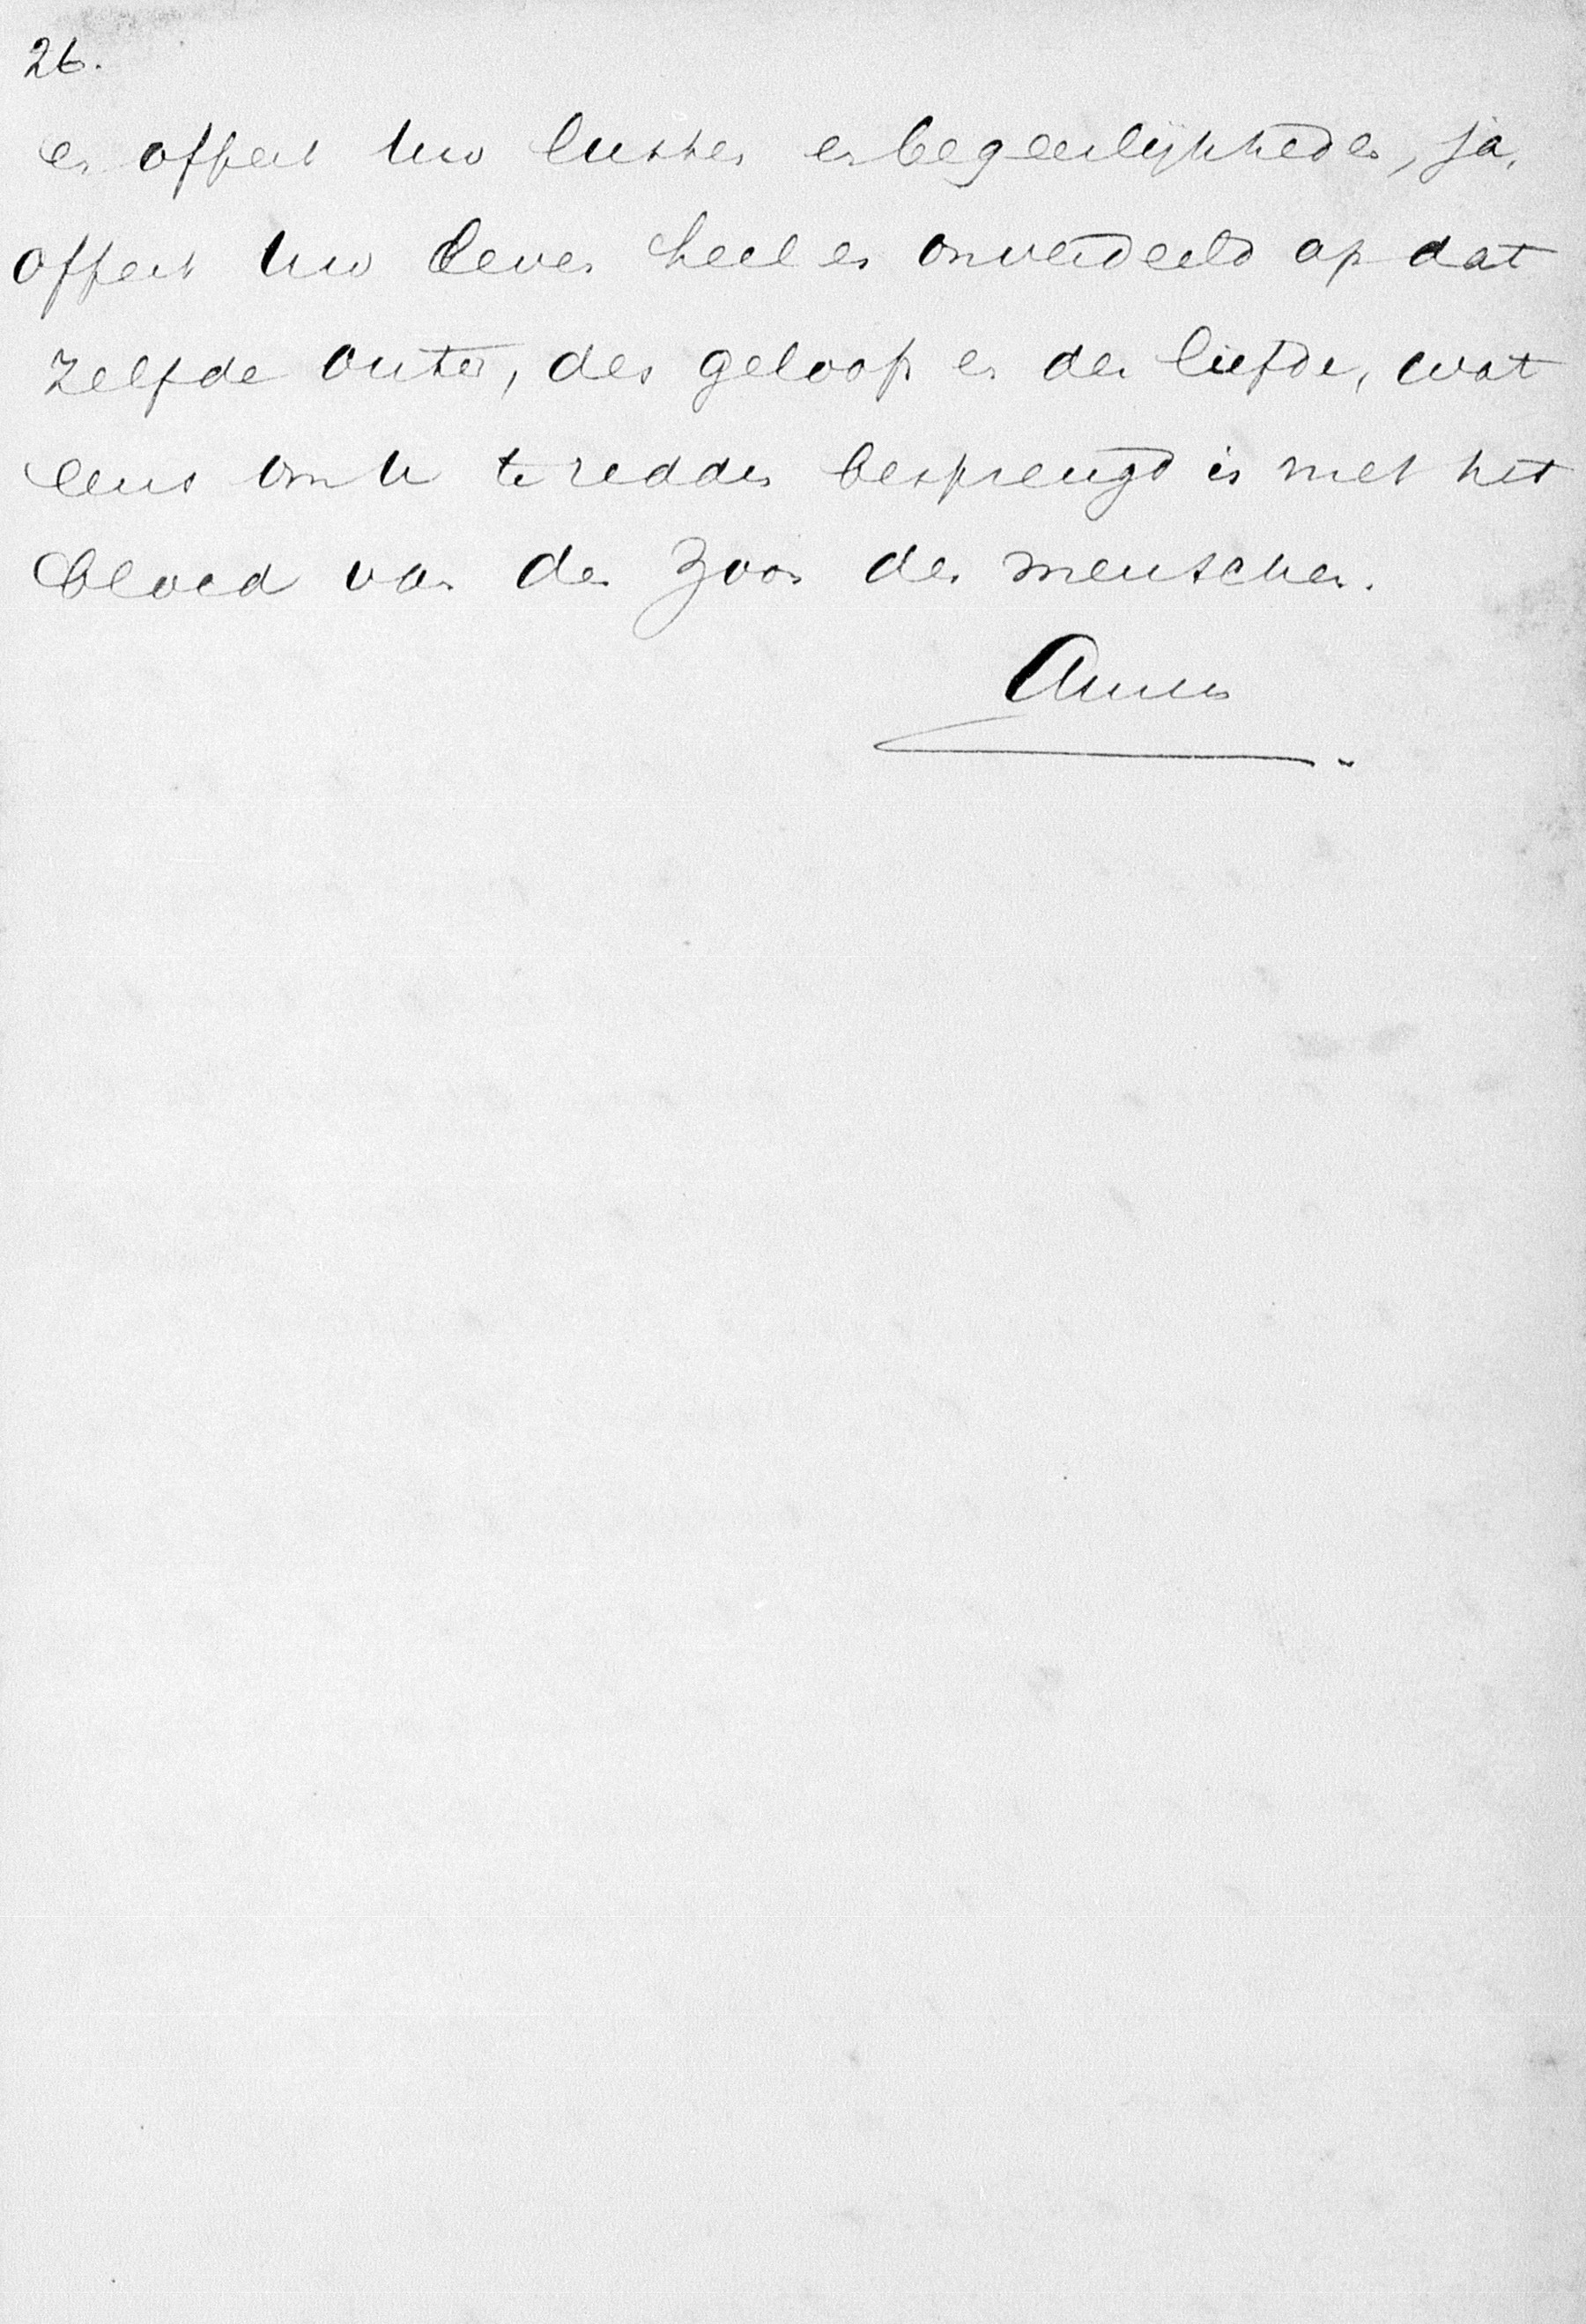 26.
en offert Uw lusten en begeerlijkheden, ja,
offert Uw leven heel en onverdeeld op dat
zelfde outer, des geloofs en der liefde, wat
eens om U te redden besprengd is met het
bloed van den Zoon des menschen.
Amen